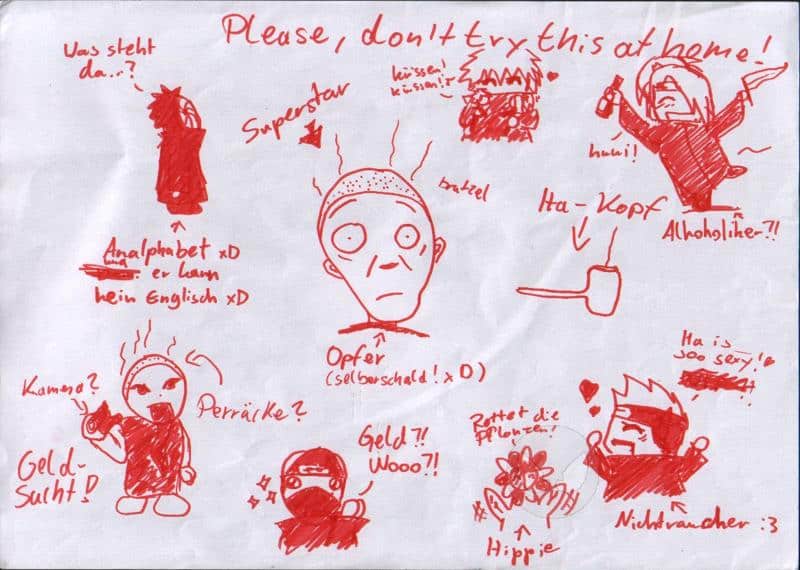 Please, don't try this at home!
Was steht
da...?
Superstar
küssen!
küssen!!
huui!
brutzel
Ha-Kopf
Alkoholiker?!
Analphabet xD
er kann
kein Englisch xD
Opfer
(selberschald! xD)
Kamera?
Perräcke?
Geld-
Sucht!
Geld?!
Wooo?!
Rettet die
Pflanzen!
Hippie
Ha is
soo sexy!
Nichtraucher :3